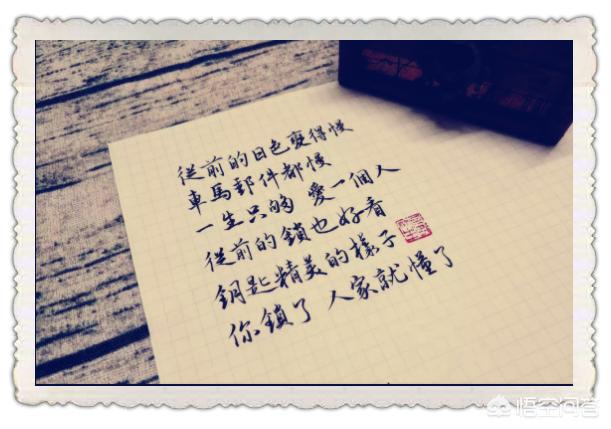 從前的日色變得慢
車馬郵件都慢
一生只夠 愛一個人
從前的鎖也好看
鑰匙精美的樣子
你鎖了 人家就懂了
悟空问答